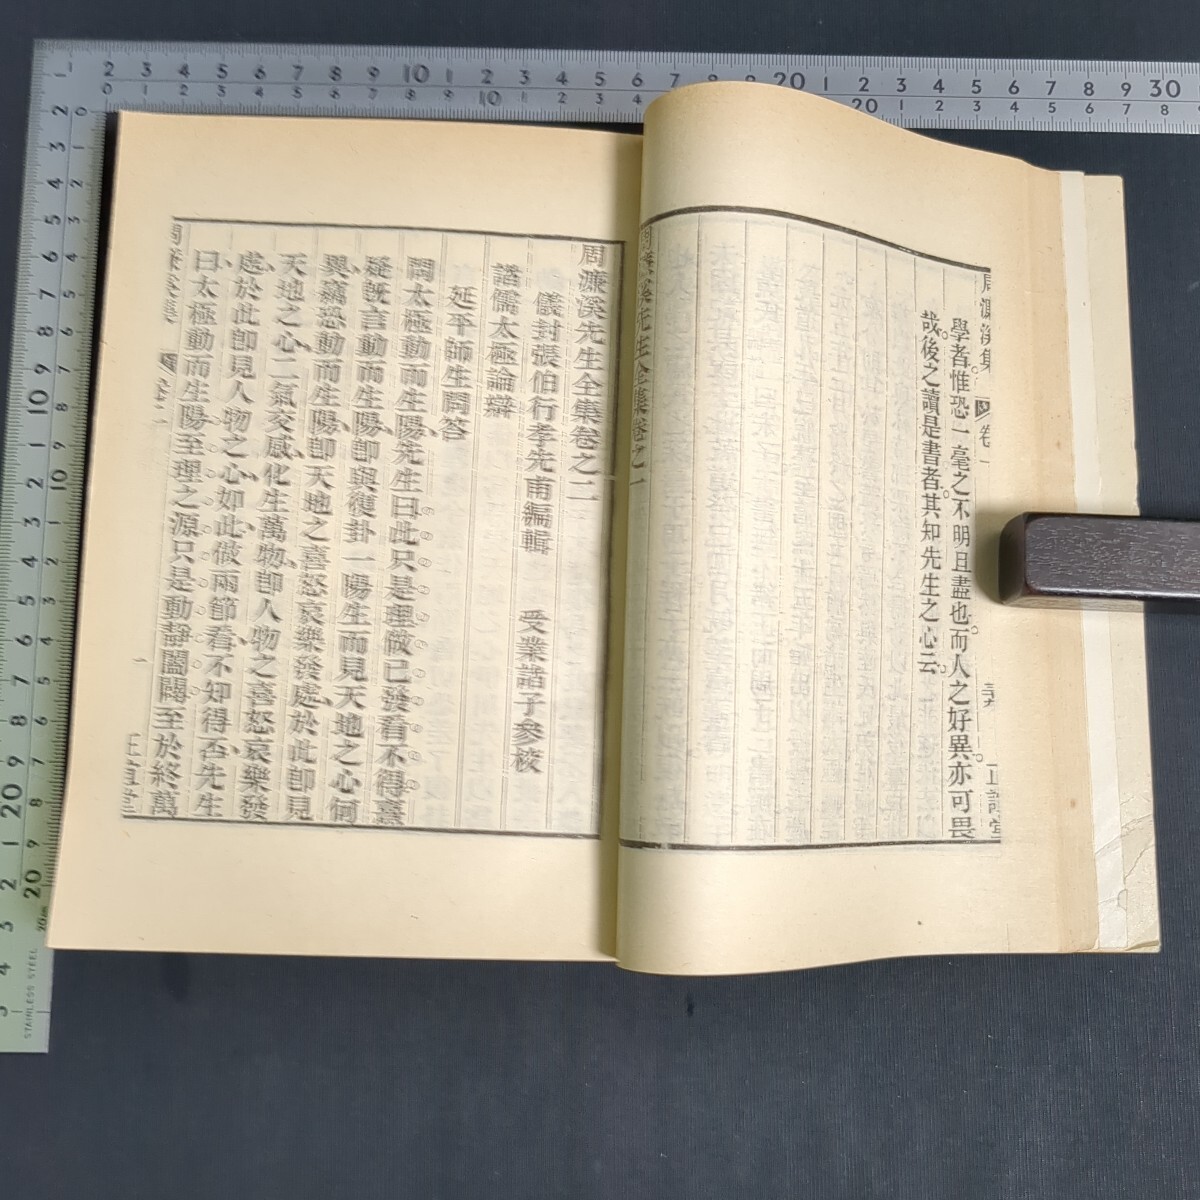 學者惟恐一毫之不明且盡也而人之好異亦可畏
哉後之讀是書者其知先生之心云
周濂溪先生全集卷之一
周濂溪集 卷一 正誼堂
周濂溪先生全集卷之二
儀封張伯行孝先甫編輯 受業諸子參校
諸儒太極論辯
延平師生問答
問太極動而生陽先生曰此只是理做已發看不得熹
疑既言動而生陽卽與復卦一陽生而見天地之心何
異竊恐動而生陽卽天地之喜怒哀樂發處於此卽見
天地之心二氣交感化生萬物卽人物之喜怒哀樂發
處於此卽見人物之心如此做兩節看不知得否先生
曰太極動而生陽至理之源只是動靜闔闢至於終萬
周濂溪集 卷二 一 正誼堂